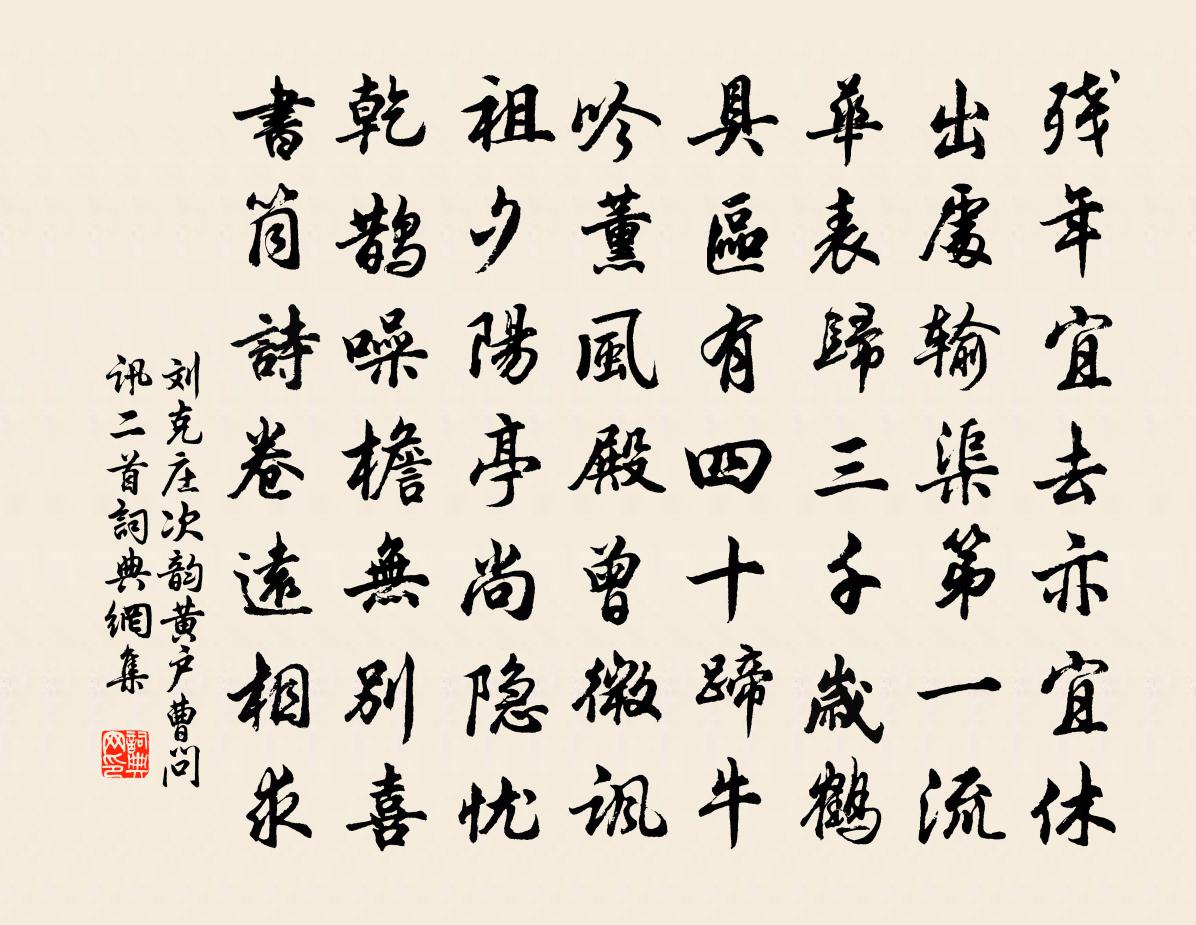 残年宜去亦宜休
出處输渠第一流
華表歸三千歲鶴
具區有四十蹄牛
吟薰風殿曾微諷
祖夕陽亭尚隐忧
乾鹊噪檐無别喜
書筒詩卷遠相求
刘克庄次韵黄户曹问
讯二首詞典網集
詞典
网印